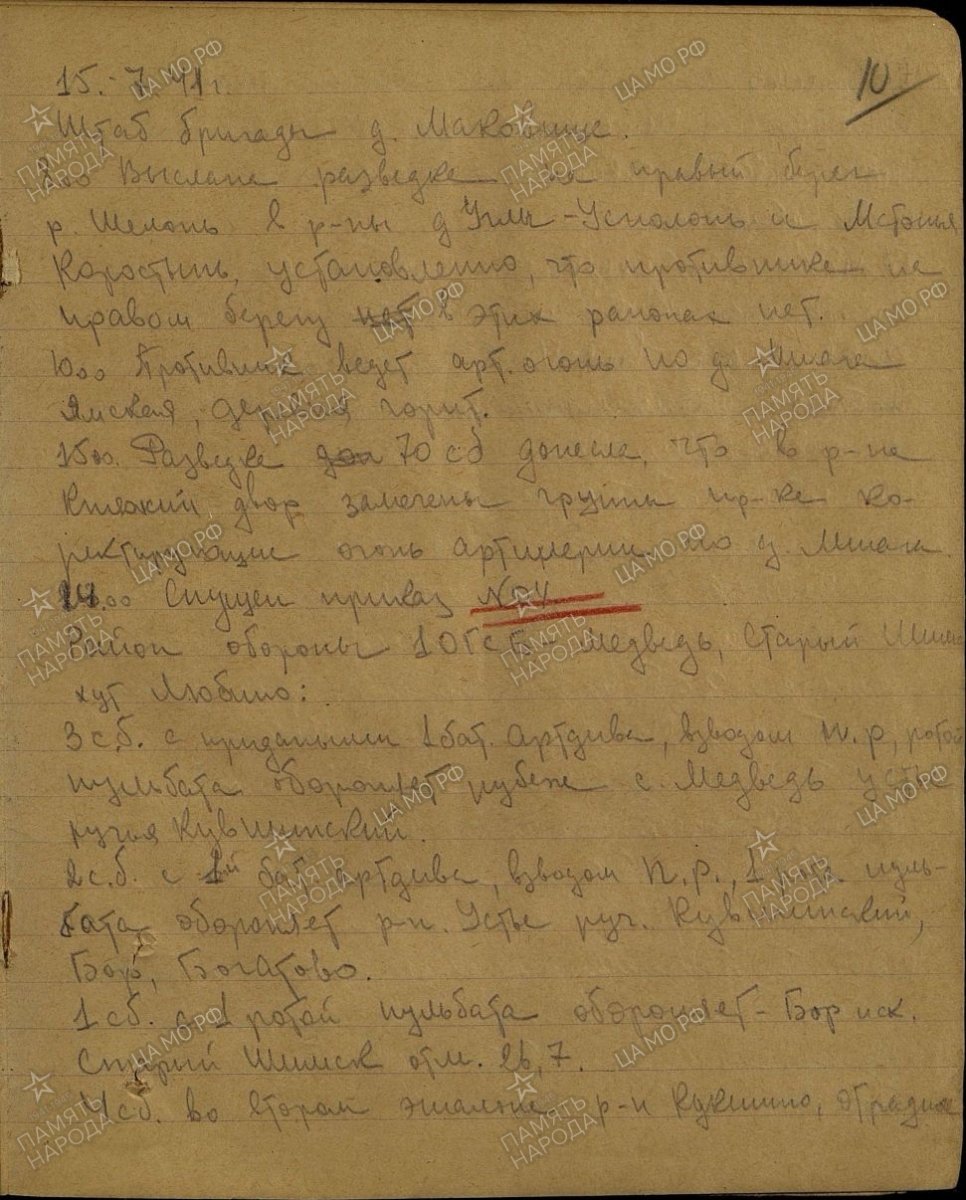 10
15.7.41г.
Штаб бригады д. Маковище.
8.00 Выслана разведка на правый берег
р. Шелонь в р-ны д Углы-Усполонь и Мстонья
Коростынь, установленно, что противника на
правом берегу нет в этих районах нет.
10.00 Противник ведет арт. огонь по д. Мшага
Ямская, деревня горит.
15.00. Разведка 70 сб донесла, что в р-не
Княжий двор замечены группы пр-ка ко-
ректирующие огонь артилерии по д. Мшага.
00 Спущен приказ №4
Район обороны 1 ОГСБ - Медведь, Старый Шимск
хут Любино:
3 с.б. с приданными 1 бат. Артдива, взводом п.р, ротой
пульбата обороняет рубеж с. Медведь устье
ручья Кувшинский.
2 с.б. с 1й бат. артдива, взводом п.р., 1 рота пуль-
бата обороняет р-н. Устье руч. Кувшинский,
Бор, Богатово.
1 сб. с 1 ротой пульбата обороняет - Бор иск.
Старый Шимск отм. 26,7.
4 сб. во втором эшалоне р-н Кукшино, Отрадное